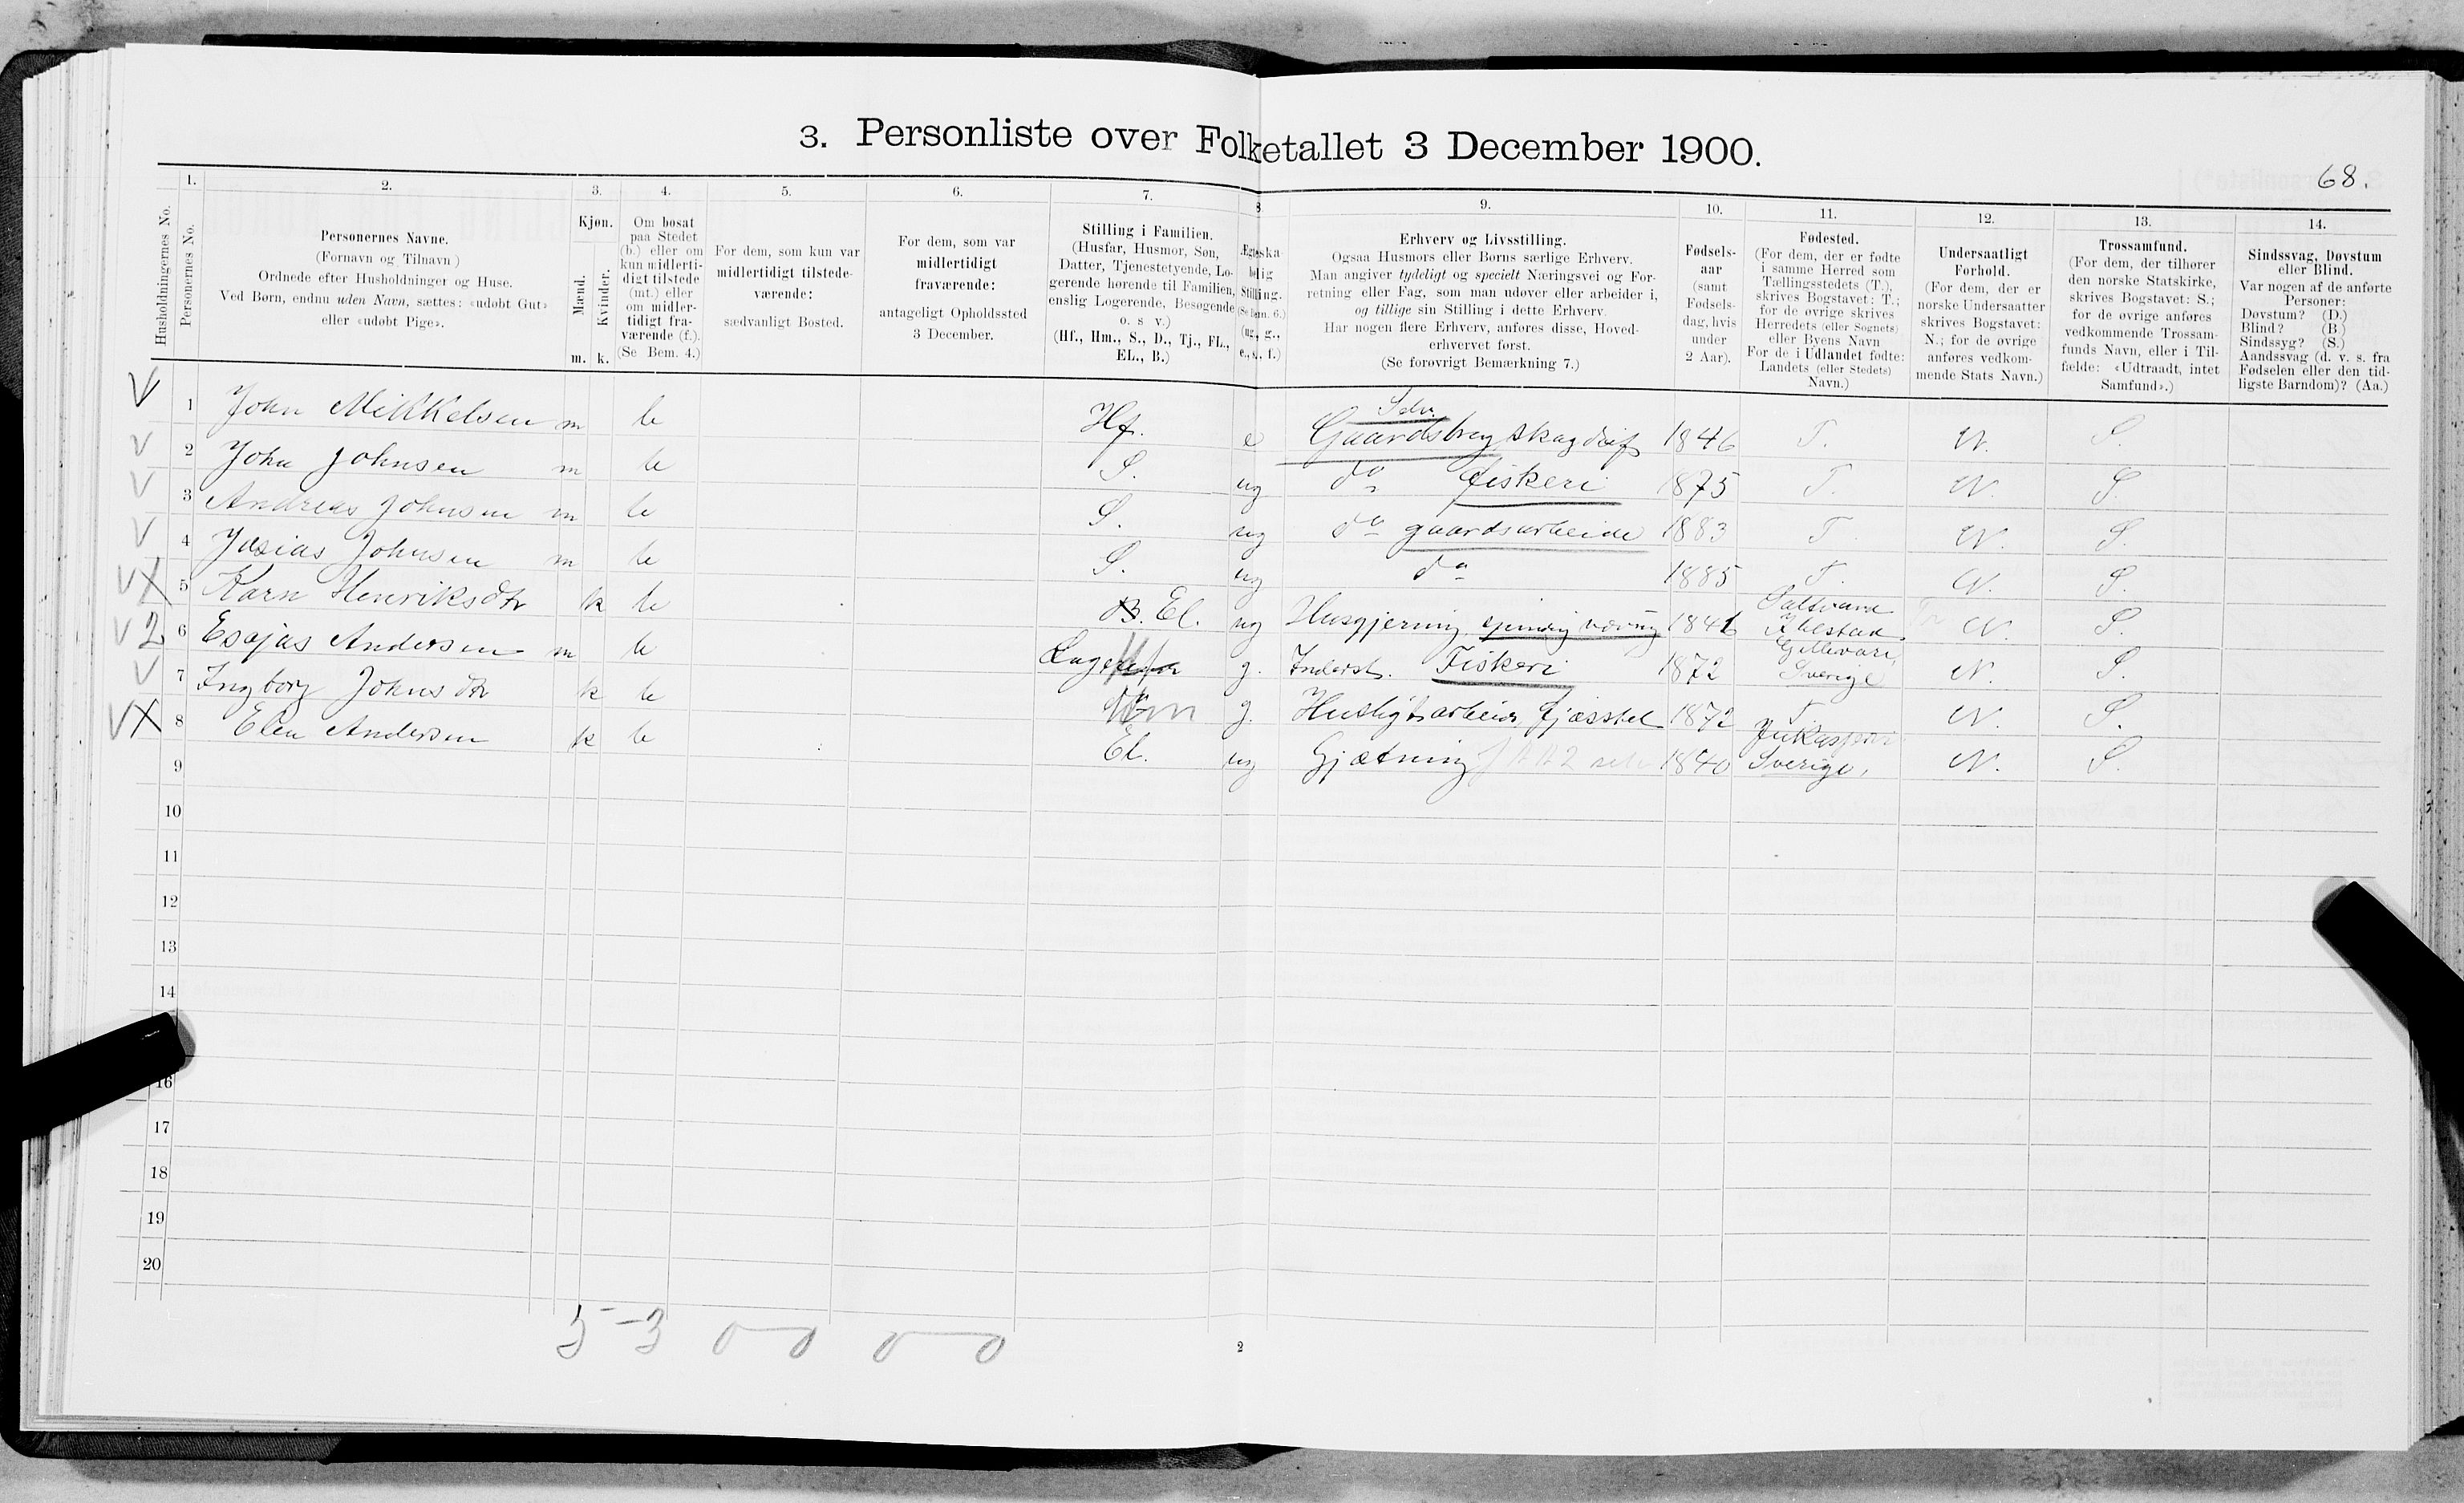 3. Personliste over Folketallet 3 December 1900.
68.
1. 2. 3. 4. 5. 6. 7. 8 9. 10. 11. 12. 13. 14.
Husholdningernes No.
Personernes No.
Personernes Navne.
(Fornavn og Tilnavn)
Ordnede efter Husholdninger og Huse.
Ved Børn, endnu uden Navn, sættes: «udøbt Gut»
eller «udøbt Pige».
Kjøn.
Mænd.
Kvinder.
m. k.
Om bosat
paa Stedet
(b.) eller om
kun midlerti-
digt tilstede
(mt.) eller
om midler-
tidigt fra-
værende (f.).
(Se Bem. 4.)
For dem, som kun var
midlertidigt tilstede-
værende:
sædvanligt Bosted.
For dem, som var
midlertidigt
fraværende:
antageligt Opholdssted
3 December.
Stilling i Familien.
(Husfar, Husmor, Søn,
Datter, Tjenestetyende, Lo-
gerende hørende til Familien,
enslig Logerende, Besøgende
o. s v.)
(Hf., Hm., S., D., Tj., FL.,
EL., B.)
Ægteska-
belig
Stilling.
(Se Bem. 6.)
(ug., g.,
e., s., f.)
Erhverv og Livsstilling.
Ogsaa Husmors eller Børns særlige Erhverv.
Man angiver tydeligt og specielt Næringsvei og For-
retning eller Fag, som man udøver eller arbeider i,
og tillige sin Stilling i dette Erhverv.
Har nogen flere Erhverv, anføres disse, Hoved-
erhvervet først.
(Se forøvrigt Bemærkning 7.)
Fødsels-
aar
(samt
Fødsels-
dag, hvis
under
2 Aar).
Fødested.
(For dem, der er fødte
i samme Herred som
Tællingsstedets (T.),
skrives Bogstavet: T.;
for de øvrige skrives
Herredets (eller Sognets)
eller Byens Navn
For de i Udlandet fødte:
Landets (eller Stedets)
Navn.)
Undersaatligt
Forhold.
(For dem, der er
norske Undersaatter
skrives Bogstavet:
N.; for de øvrige
anføres vedkom-
mende Stats Navn.)
Trossamfund.
(For dem, der tilhører
den norske Statskirke,
skrives Bogstavet: S.;
for de øvrige anføres
vedkommende Trossam-
funds Navn, eller i Til-
fælde: «Udtraadt, intet
Samfund».)
Sindssvag, Døvstum
eller Blind.
Var nogen af de anførte
Personer:
Døvstum? (D.)
Blind? (B.)
Sindssyg? (S.)
Aandssvag (d. v. s. fra
Fødselen eller den tid-
ligste Barndom)? (Aa.)
V 1 John Mikkelsen m b Hf. e Selv. Gaardsbrug 1846 T. N. S.
V 2 John Johnsen m b S. ug do fiskeri 1875 T. N. S.
V 3 Andreas Johnsen m b S. ug do gaardsarbeide 1883 T. N. S.
V 4 Josias Johnsen m b S. ug do 1885 T. N. S.
V X 5 Karn Henriksdtr k b B. El. ug Husgjerning N. S.
V 2 6 Esajas Andersen m b g. Inderst. Fiskeri 1872 Gellivare, Sverige N. S.
V 7 Ingborg Johnsdtr k b Hm g. 1872 T. N. S.
V X 8 Elen Andersen k b El. ug Gjætning 1840 Sverige, N. S.
9
10
11
12
13
14
16
17
18
19
20
5 - 3 0 0 0 0
2